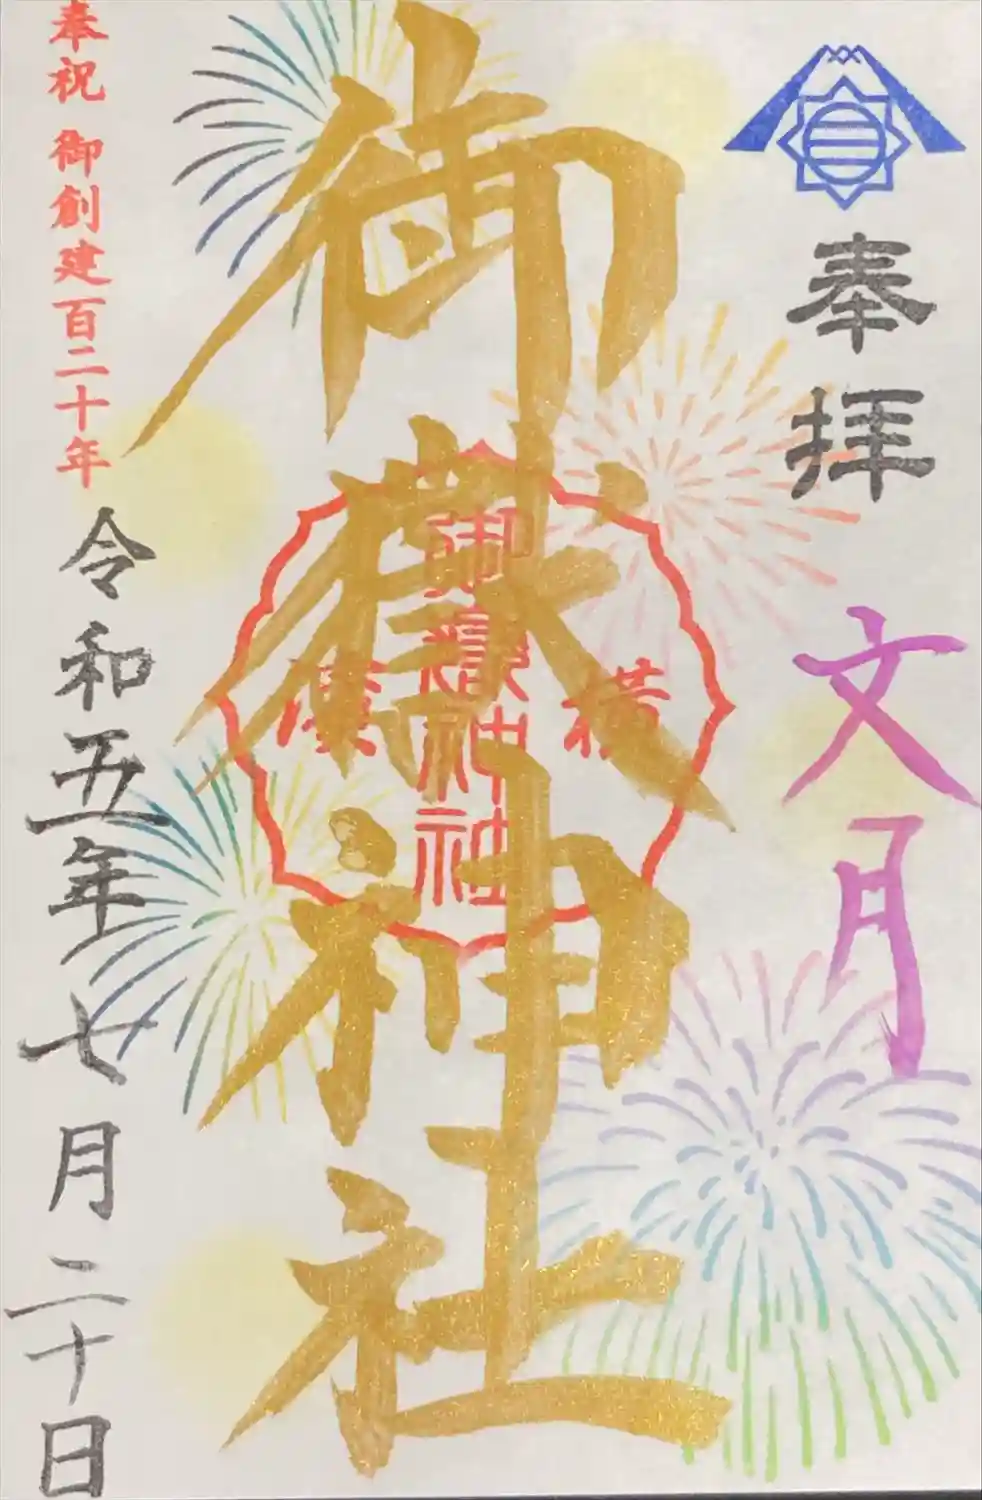 奉拝
文月
御嶽神社
横
御嶽神社
濱
奉祝 御創建百二十年
令和五年七月二十日